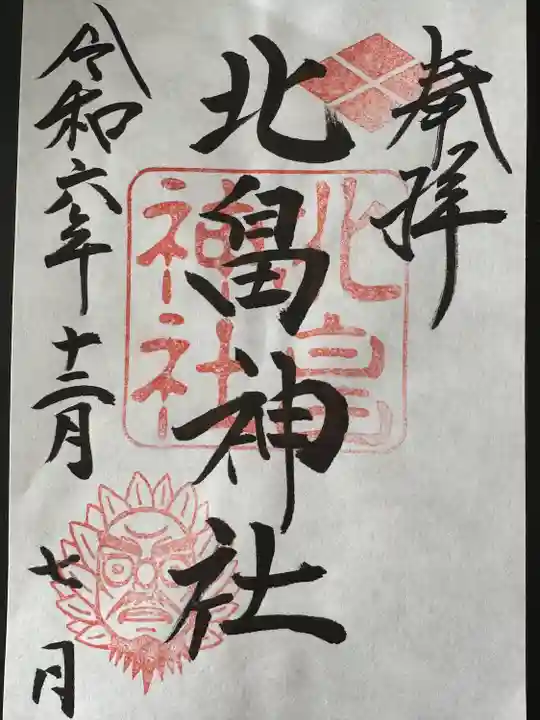 奉拝
北畠神社
令和六年十二月七月
北畠
神社